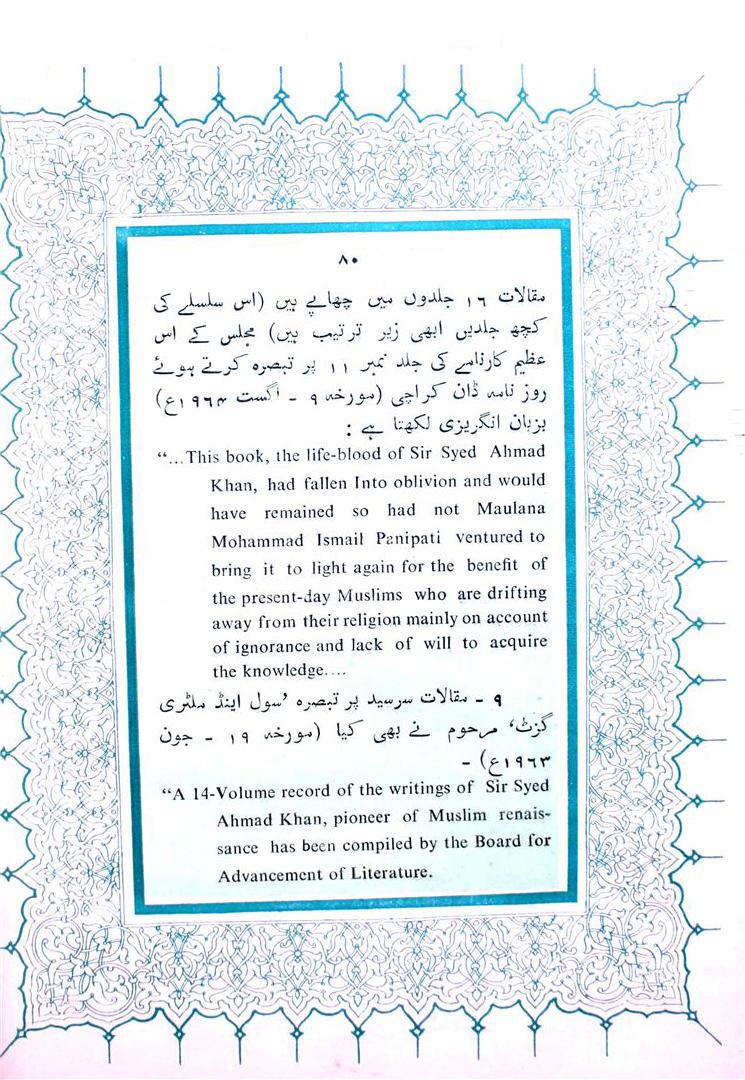 ۸۰
مقالات ۱۶ جلدوں میں چھاپے ہیں (اس سلسلے کی
کچھ جلدیں ابھی زیر ترتیب ہیں) مجلس کے اس
عظیم کارنامے کی جلد نمبر ۱۱ پر تبصرہ کرتے ہوئے
روز نامہ ڈان کراچی (مورخہ ۹ - اگست ۱۹۶۴ع)
بزبان انگریزی لکھتا ہے :
“...This book, the life-blood of Sir Syed Ahmad
Khan, had fallen Into oblivion and would
have remained so had not Maulana
Mohammad Ismail Panipati ventured to
bring it to light again for the benefit of
the present-day Muslims who are drifting
away from their religion mainly on account
of ignorance and lack of will to acquire
the knowledge....
۹ - مقالات سرسید پر تبصرہ ’سول اینڈ ملٹری
گزٹ‘ مرحوم نے بھی کیا (مورخہ ۱۹ - جون
۱۹۶۳ع) -
“A 14-Volume record of the writings of Sir Syed
Ahmad Khan, pioneer of Muslim renais-
sance has been compiled by the Board for
Advancement of Literature.